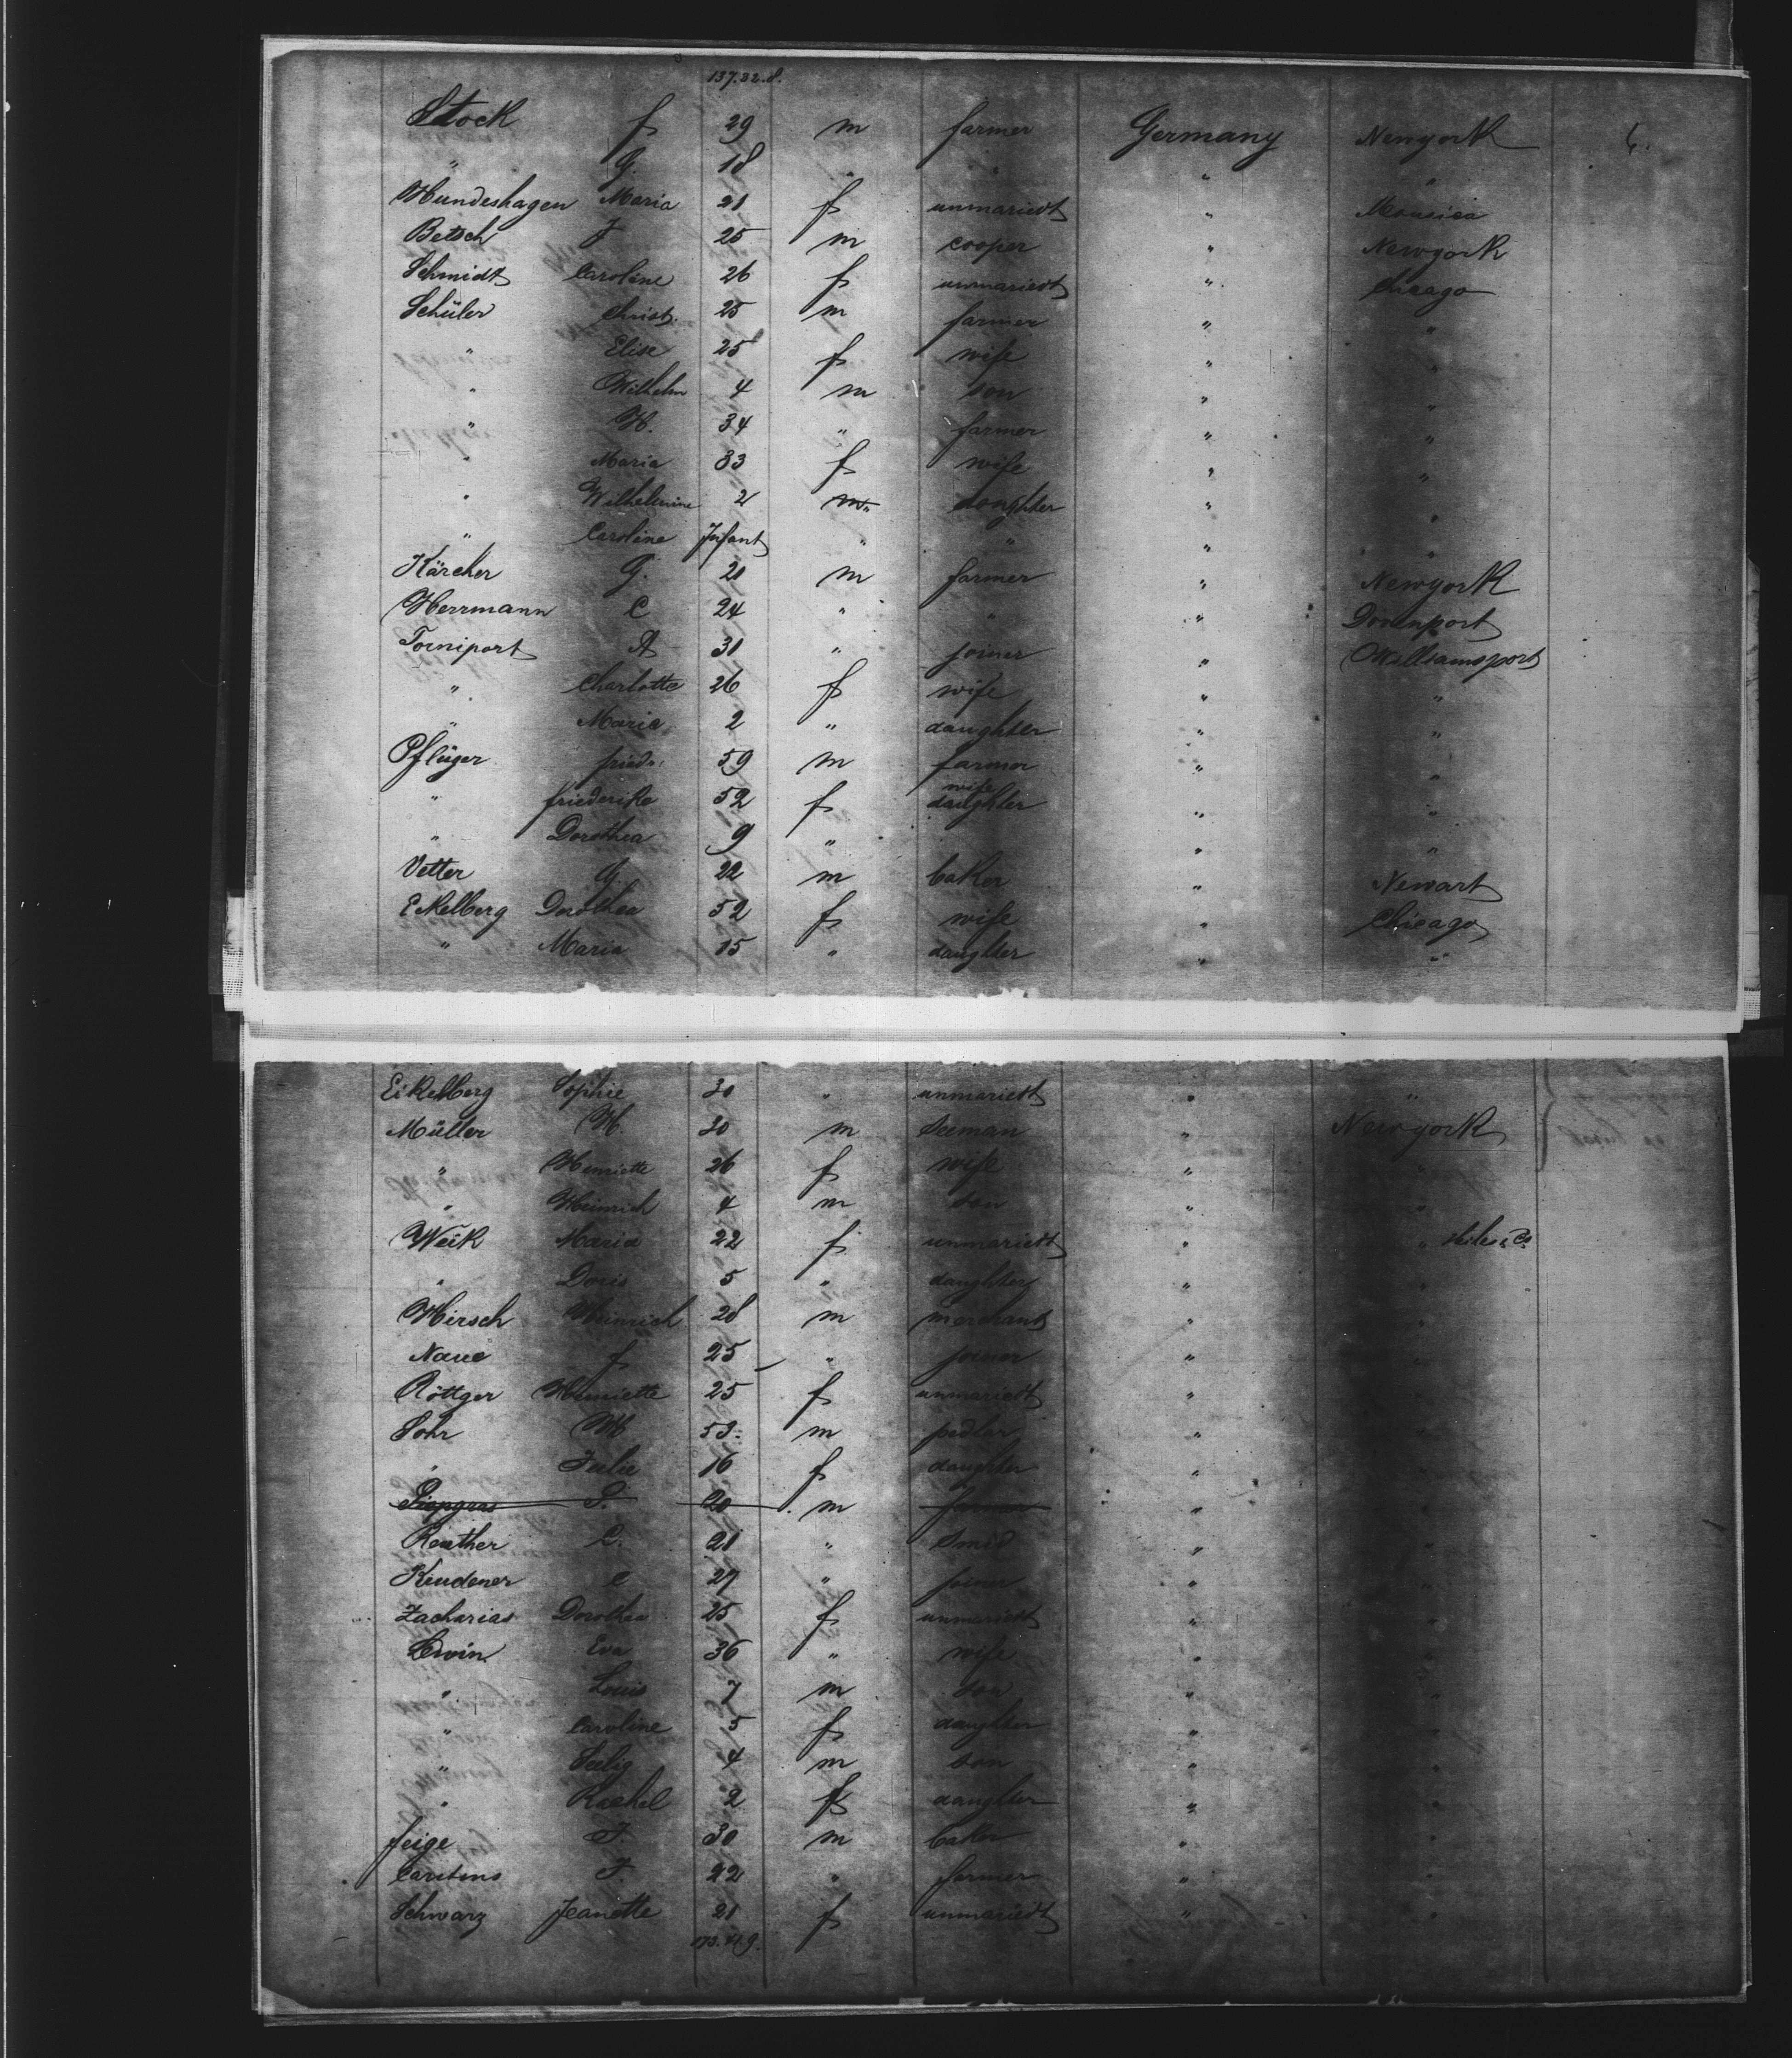 137.32.8.
Stock f 29 m farmer Germany Newyork 6.
" G. 18 " " " "
Hundeshagen Maria 21 f unmariedt "
Betsch J 25 m cooper " Newyork
Schmidt Caroline 26 f unmariedt " Chicago
Schüler Christ. 25 m farmer " "
" Elise 25 f wife " "
" Wilhelm 4 m son " "
" H. 34 " farmer " "
" Maria 33 f wife " "
" Wilhelmine 2 m " daughter " "
" Caroline Infant " " " "
Kärcher G. 21 m farmer " Newyork
Herrmann C 24 " " " Davenport
Torniport A 31 " joiner " Williamsport
" Charlotte 26 f wife " "
" Marie 2 " daughter " "
Pflüger friedr. 59 m farmer " "
" friederike 52 f wife daughter " "
" Dorothea 9 " " "
Vetter G. 22 m baker " Newart
Eikelberg Dorothea 52 f wife " Chicago
" Maria 15 " daughter " "
Eikelberg Sophie 30 " unmariedt " "
Müller H. 30 m Seeman " Newyork
" Henriette 26 f wife " "
" Heinrich 4 m son " "
Weik Maria 22 f unmariedt " "
" Doris 5 " daughter " "
Hirsch Heinrich 28 m merchant " "
Naue f 25 " joiner "
Röttger Henriette 25 f unmariedt "
Sohr M 53 m pedler "
" Julie 16 f daughter "
Piepgras P. 20 m farmer "
Reuther C. 21 " Smid "
Krudener C 27 " joiner "
Zacharias Dorothea 25 f unmariedt "
Lewin Eva 36 " wife "
" Louis 7 m son " "
" Caroline 5 f daughter " "
" Selig 4 m son " "
" Rachel 2 f daughter " "
feige J. 30 m baker " "
Carstens J. 22 " farmer " "
Schwarz Jeanette 21 f unmariedt " "
173.41.9.